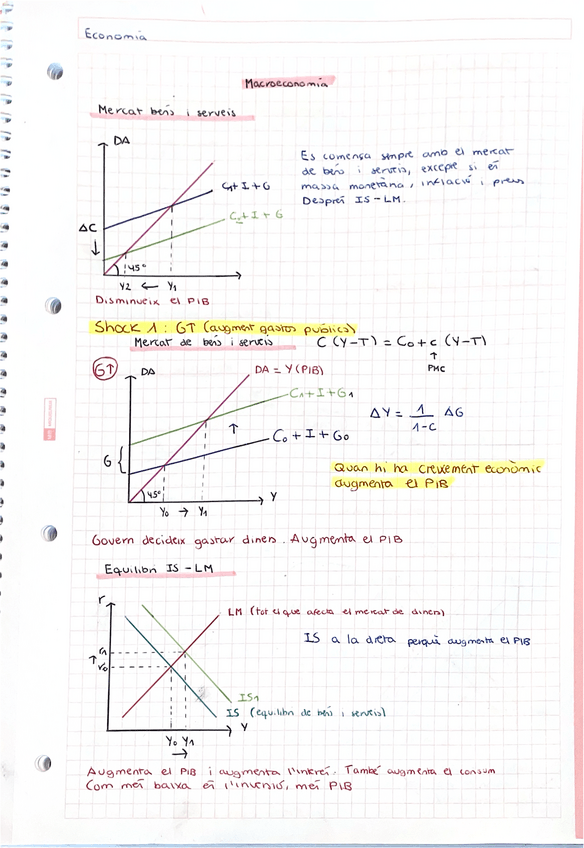 Economia
Macroeconomia
Mercat bens i serveis
DA
C1+I+G
C2+I+G
ΔC
↓
45°
Y2 ← Y1
Disminueix el PIB
Es comença smpre amb el mercat
de bens i serveis, excepe si és
massa monetària, inflació i preus
Després IS-LM.
Shock 1: G↑ (augment gastos públics)
Mercat de bens i serveis
C (Y-T) = C0 + c (Y-T)
↑
PMC
G↑
DA
DA = Y (PIB)
C1+I+G1
↑
C0+I+G0
G {
45°
Y0 → Y1
Y
ΔY = 1/1-c ΔG
Quan hi ha creixement econòmic
augmenta el PIB
Govern decideix gastar diners. Augmenta el PIB
Equilibri IS-LM
r
LM (tot el que afecta el mercat de diners)
IS a la dreta perquè augmenta el PIB
r1
↑
r0
IS1
IS (equilibri de bens i serveis)
Y0 Y1
→
Y
Augmenta el PIB i augmenta l'interés. També augmenta el consum
Com més baixa és l'inversió, més PIB